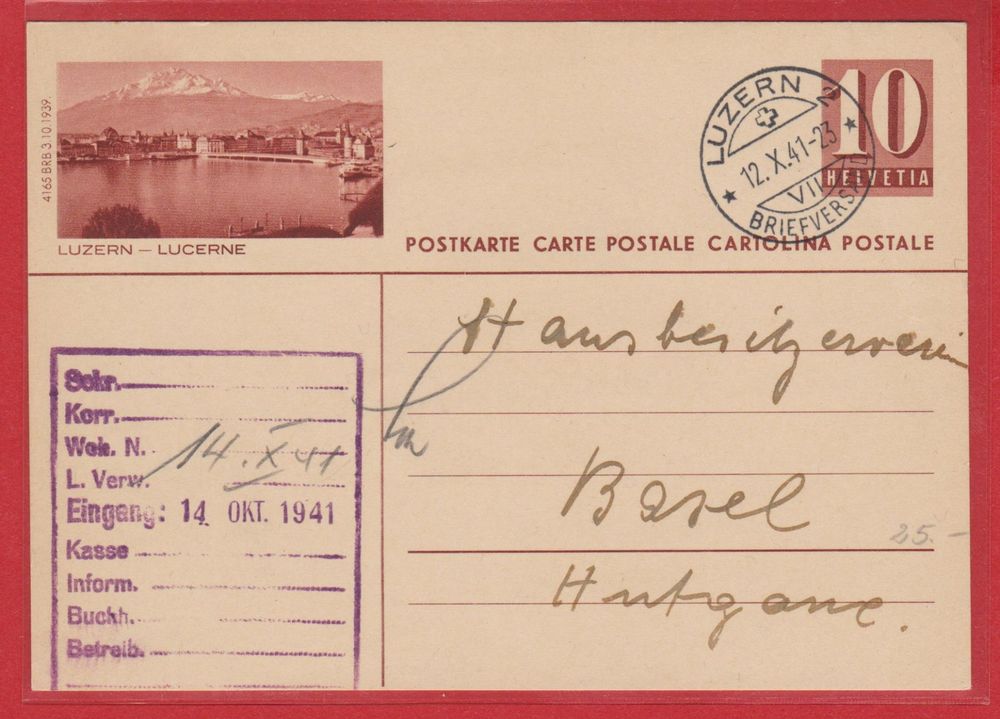 4165 BRB 3.10.1939.
LUZERN – LUCERNE
10
HELVETIA
LUZERN 2
12.X.41-23
VII
BRIEFVERSAND
POSTKARTE CARTE POSTALE CARTOLINA POSTALE
Hausbesitzerverein
Basel
Hutgasse.
25.–
Sekr.
Korr.
Woh. N.
L. Verw.
14.X 41
Eingang: 14. OKT. 1941
Kasse
Inform.
Buchh.
Betreib.